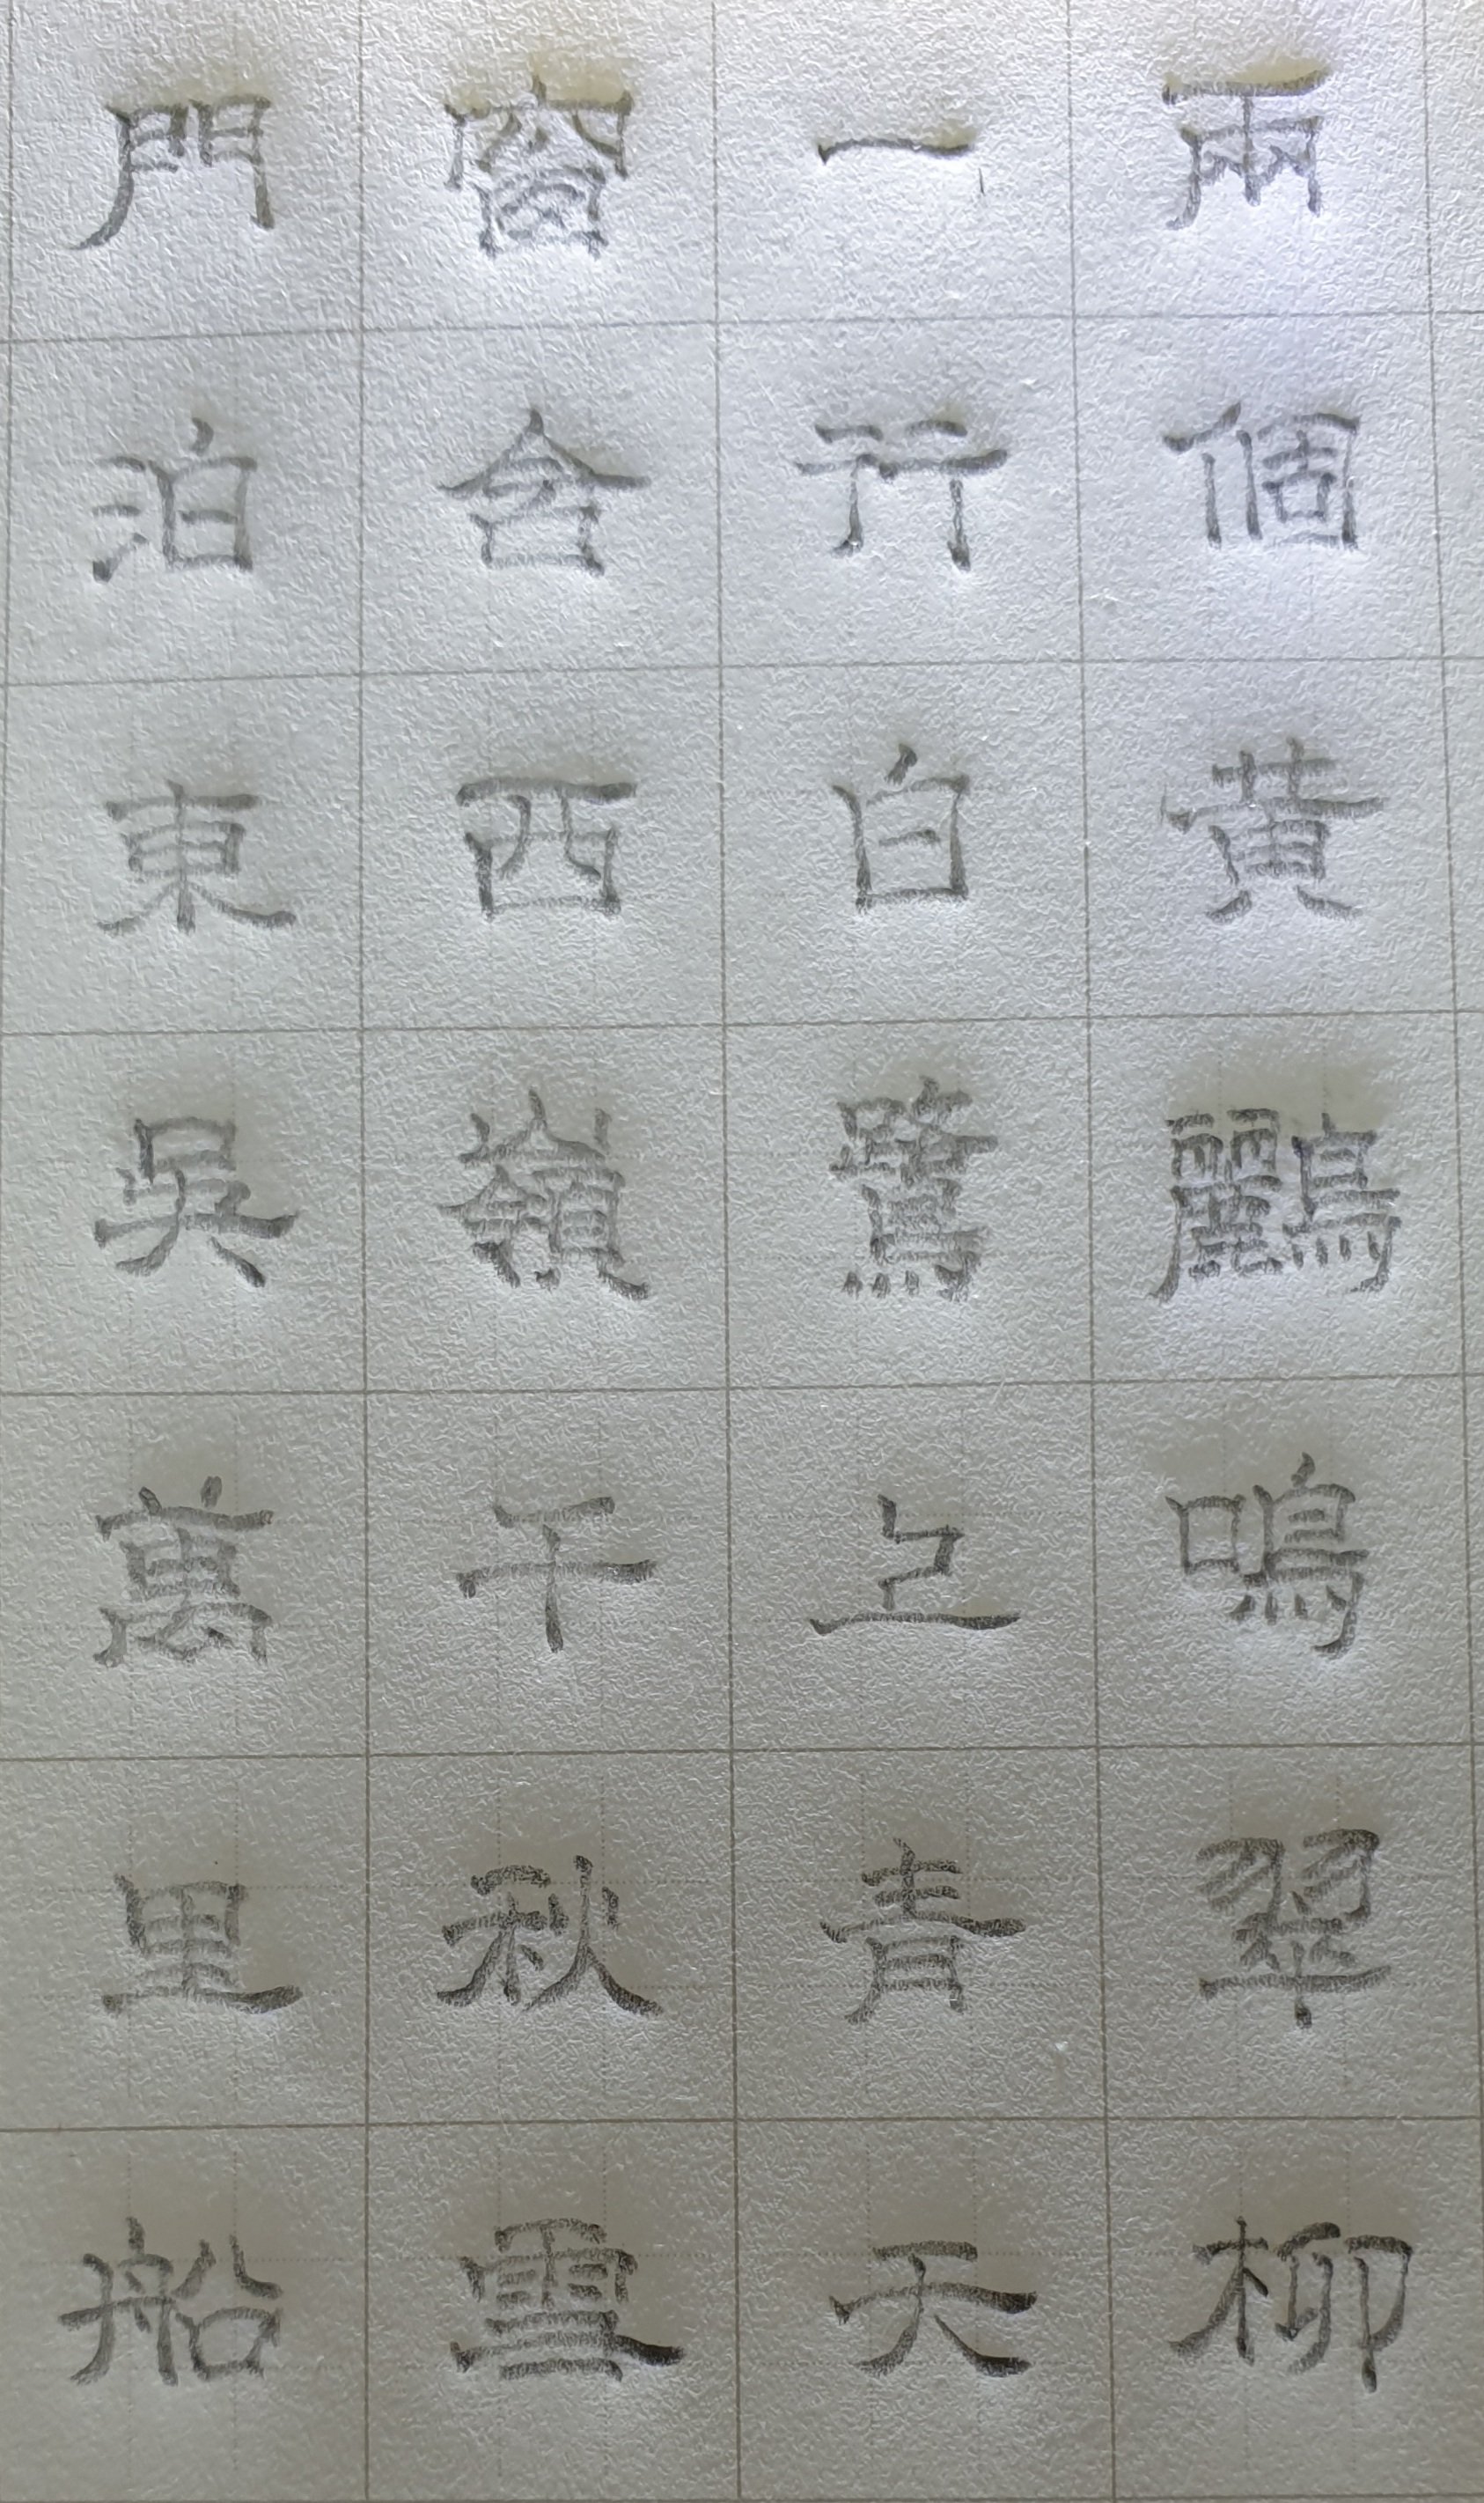 兩個黃鸝鳴翠柳
一行白鷺上青天
窗含西嶺千秋雪
門泊東吳萬里船